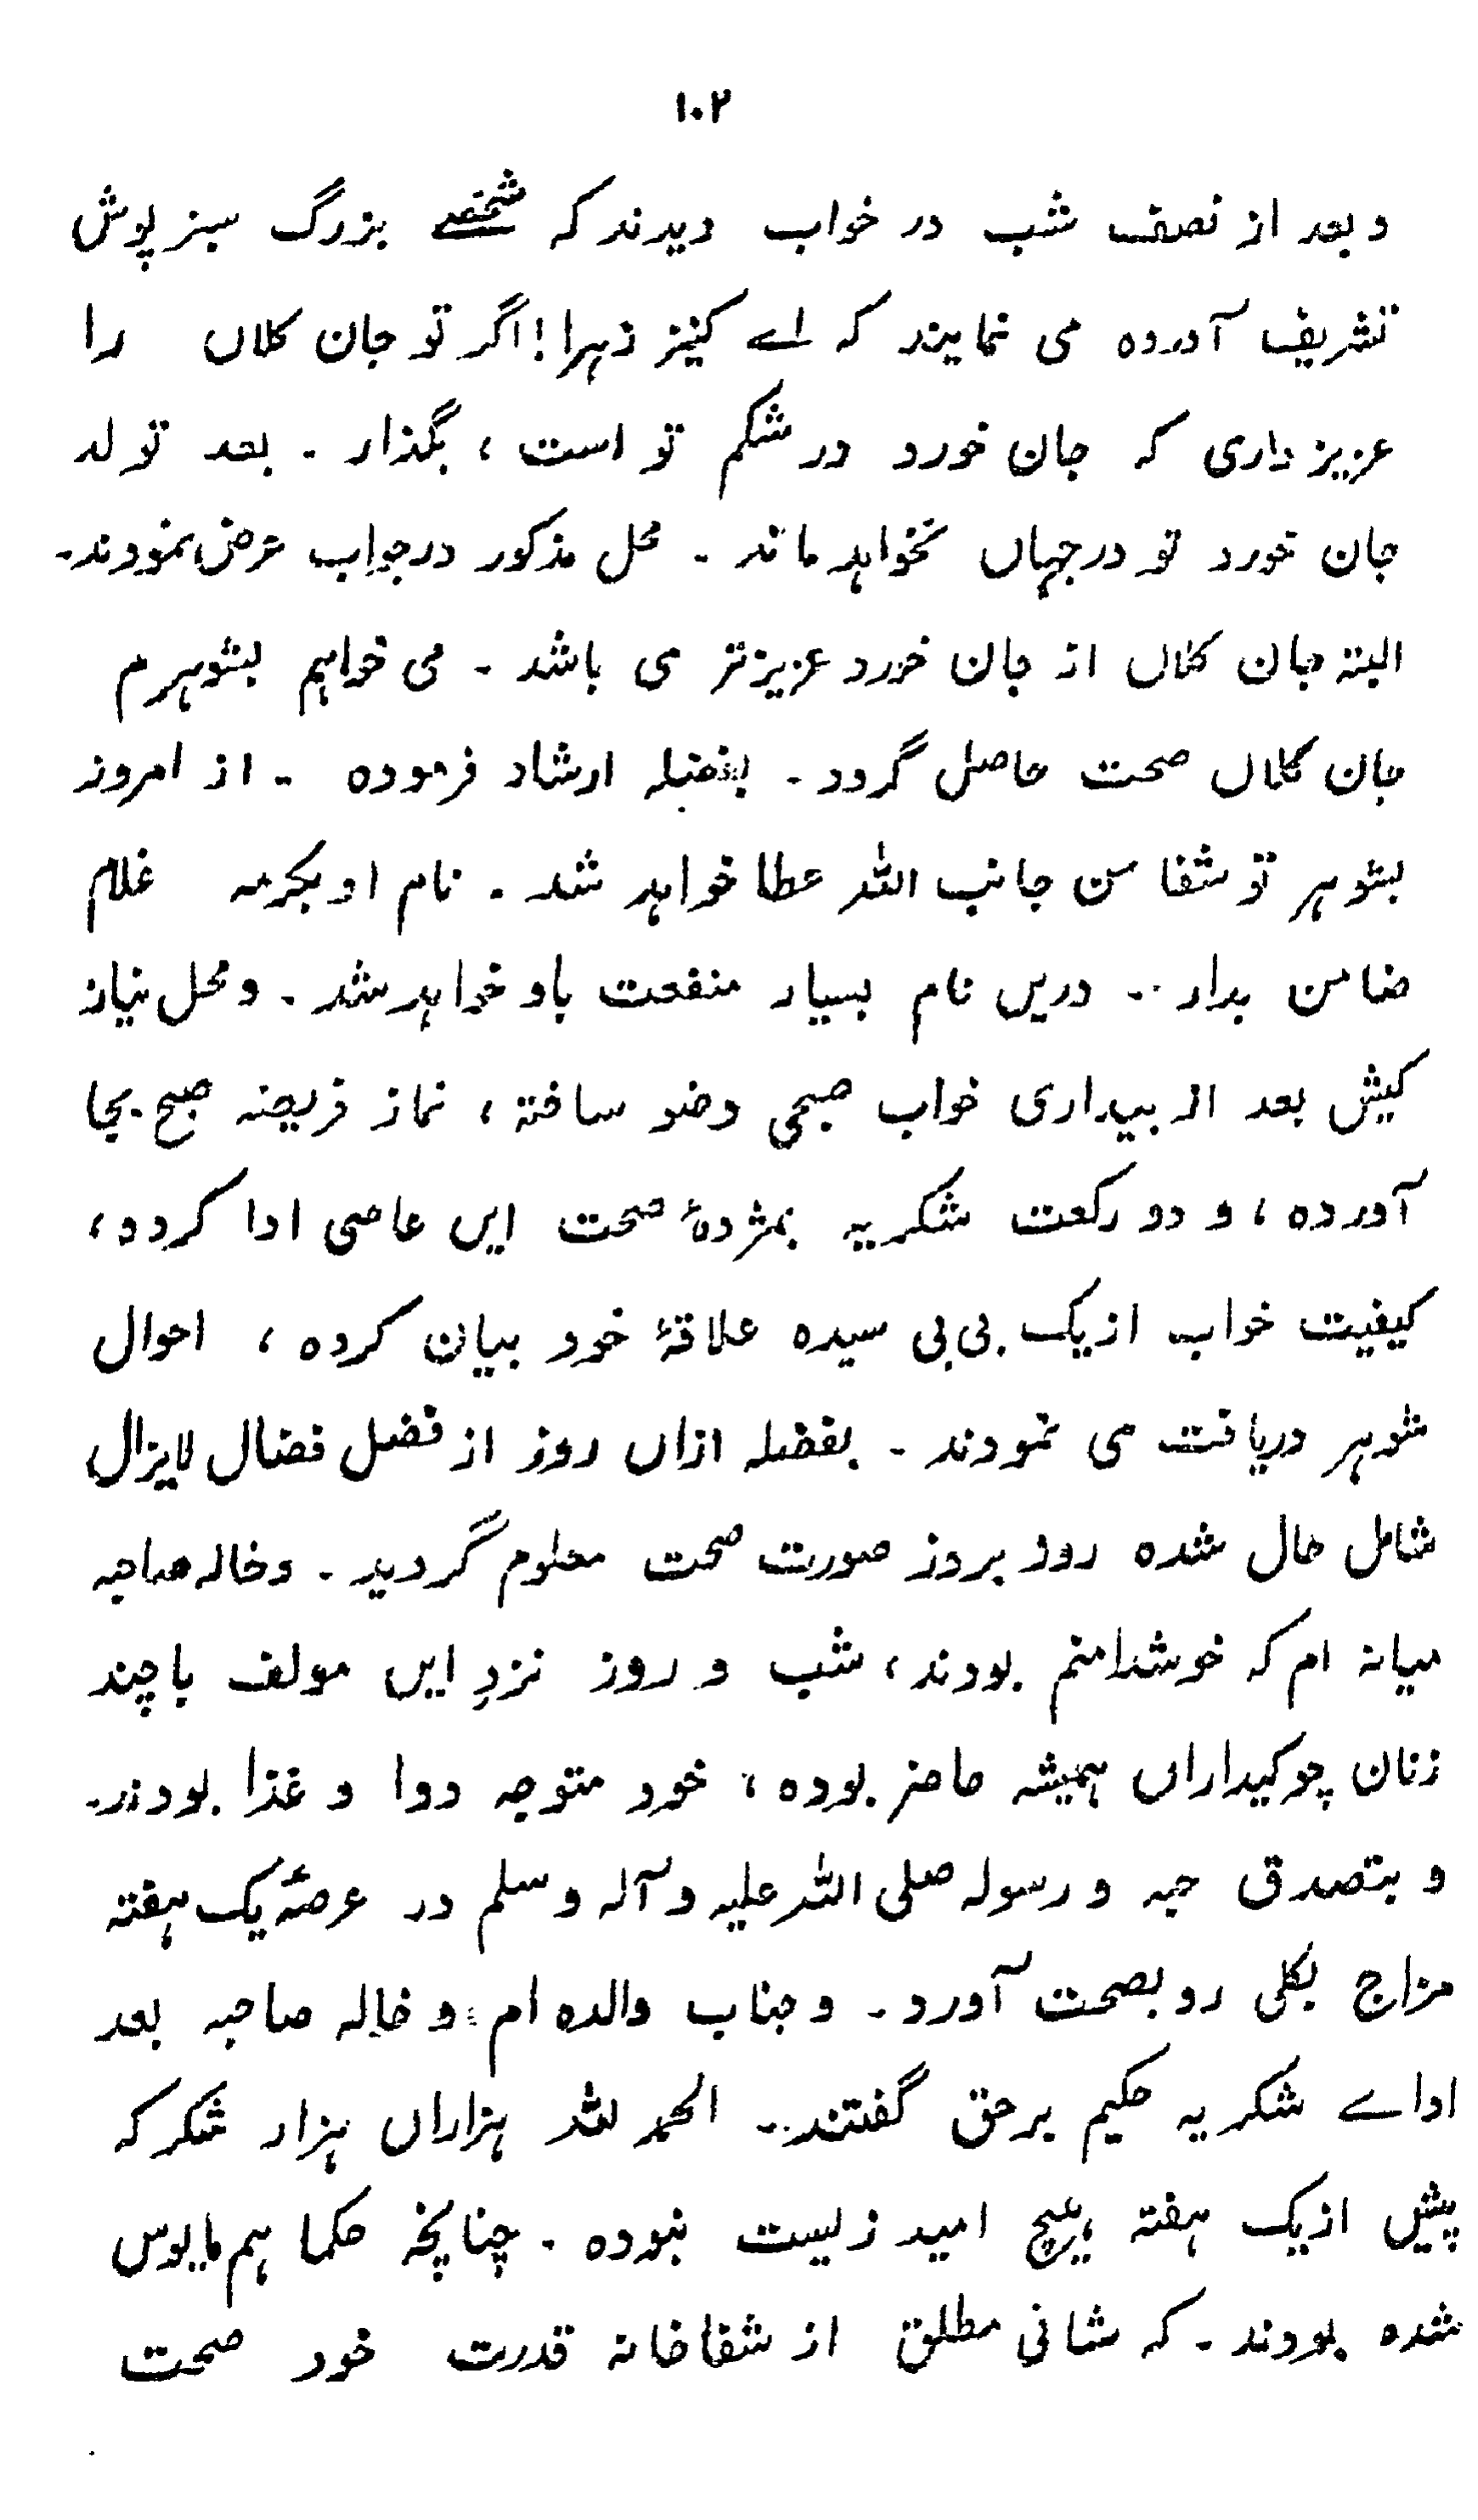 ۱۰۲
و بعد از نصف شب در خواب دیدند کہ شخصے بزرگ سبز پوش
تشریف آوردہ می نمایند کہ اے کنیز زہرا! اگر تو جان کلاں را
عزیز داری کہ جان خورد در شکم تو است، بگذار ۔ بعد تولد
جان خورد تو در جہاں نخواہد ماند ۔ محل مذکور در جواب عرض نمودند۔
البتہ جان کلاں از جان خورد عزیز تر می باشد ۔ می خواہم بشوہرم
جان کلاں صحت حاصل گردد ۔ بفضلہ ارشاد فرمودہ ۔ از امروز
بشوہر تو شفا من جانب اللہ عطا خواہد شد ۔ نام او بحرمہ غلام
ضامن بدار ۔ دریں نام بسیار منفعت باو خواہد شد ۔ و محل نیاز
کیش بعد از بیداری خواب صبحی وضو ساختہ، نماز فریضہ صبح بجا
آوردہ، و دو رکعت شکریہ بمژدۂ صحت ایں عاصی ادا کردہ،
کیفیت خواب از یک بی بی سیدہ علاقۂ خود بیان کردہ، احوال
شوہر دریافت می نمودند ۔ بفضلہ ازاں روز از فضل فضال لایزال
شامل حال شدہ روز بروز صورت صحت معلوم گردید ۔ و خالہ صاحبہ
میانہ ام کہ خوشدامنم بودند، شب و روز نزدِ ایں مولف با چند
زنان چوکیداراں ہمیشہ حاضر بودہ، خود متوجہ دوا و غذا بودند۔
و بتصدق حبہ و رسولہ صلی اللہ علیہ و آلہ وسلم در عرصۂ یک ہفتہ
مزاج بکلی رو بصحت آورد ۔ و جناب والدہ ام و خالہ صاحبہ بعد
اداے شکریہ حکیم برحق گفتند ۔ الحمد للہ ہزاراں ہزار شکر کہ
پیش از یک ہفتہ ہیچ امید زیست نبودہ ۔ چنانچہ حکما ہم مایوس
شدہ بودند ۔ کہ شافی مطلق از شفاخانہ قدرت خود صحت